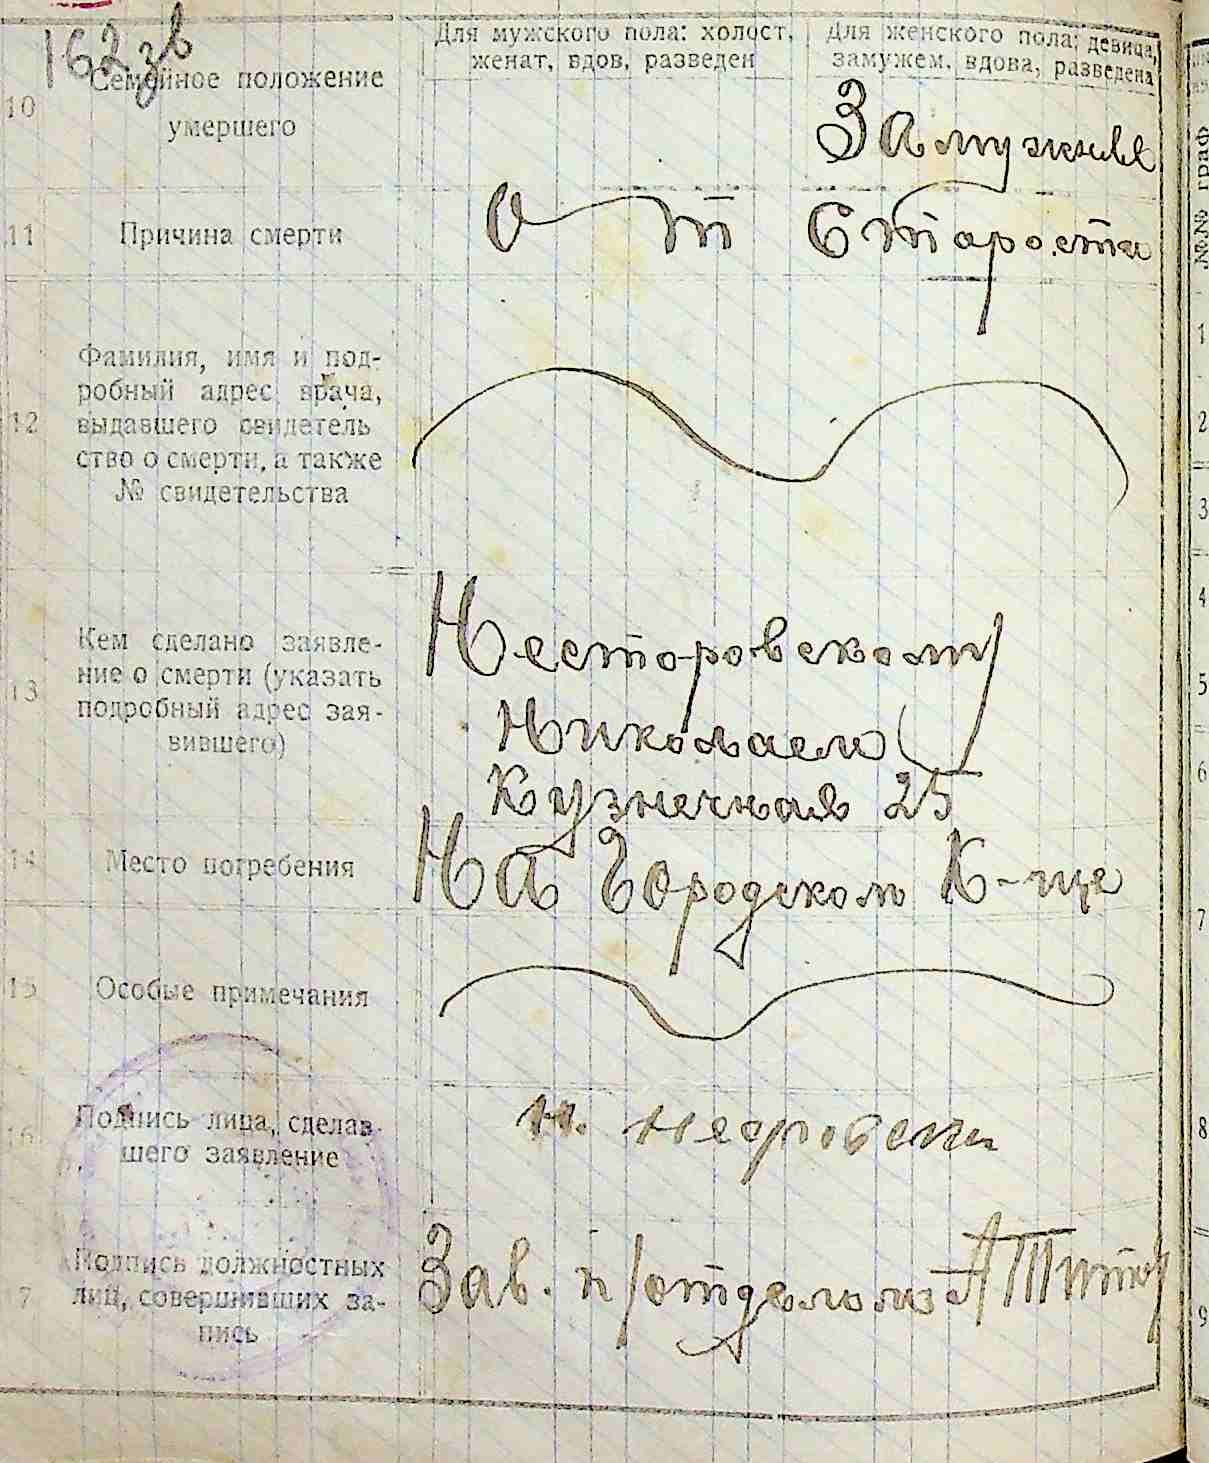 162 зв
Для мужского пола: холост,
женат, вдов, разведен
Для женского пола: девица,
замужем, вдова, разведена
10
Семейное положение
умершего
Замужняя
11
Причина смерти
От Старости
12
Фамилия, имя и под-
робный адрес врача,
выдавшего свидетель
ство о смерти, а также
№ свидетельства
13
Кем сделано заявле-
ние о смерти (указать
подробный адрес зая-
вившего)
Несторовским
Николаем
Кузнечная 25
14
Место погребения
На Городском К-ще
15
Особые примечания
16
Подпись лица, сделав-
шего заявление
Н.
7
Подпись должностных
лиц, совершивших за-
пись
Зав. п/отделом
№№ граф
1
2
3
4
5
6
7
8
9